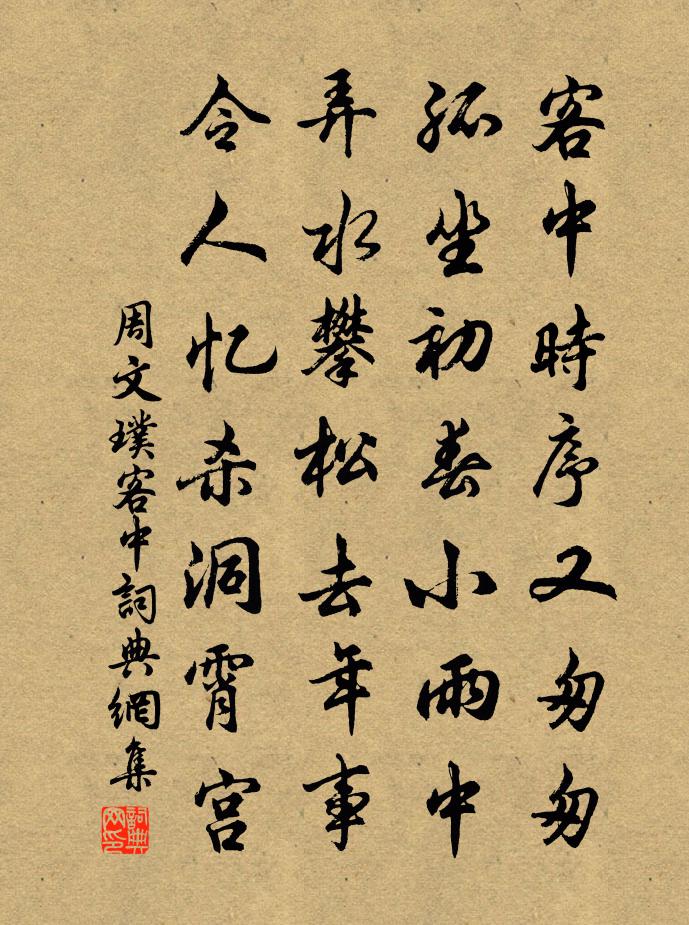 客中時序又匆匆
孤坐初春小雨中
弄水攀松去年事
令人忆杀洞霄宫
周文璞客中詞典網集
詞典网印